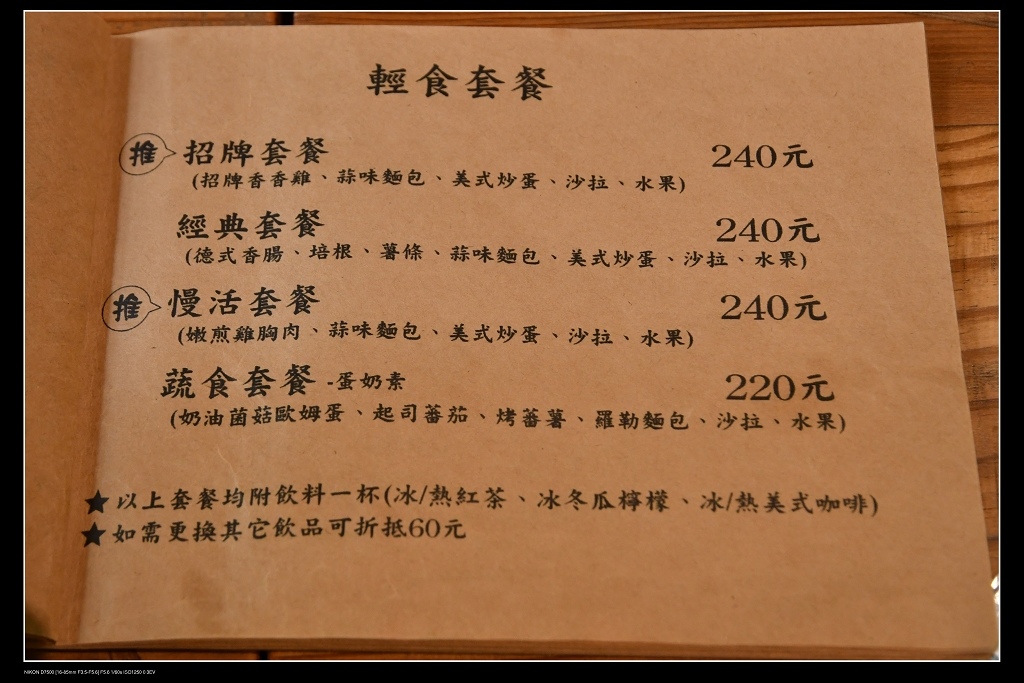 輕食套餐
推 招牌套餐 240元
(招牌香香雞、蒜味麵包、美式炒蛋、沙拉、水果)
經典套餐 240元
(德式香腸、培根、薯條、蒜味麵包、美式炒蛋、沙拉、水果)
推 慢活套餐 240元
(嫩煎雞胸肉、蒜味麵包、美式炒蛋、沙拉、水果)
蔬食套餐 -蛋奶素 220元
(奶油菌菇歐姆蛋、起司蕃茄、烤蕃薯、羅勒麵包、沙拉、水果)
★以上套餐均附飲料一杯(冰/熱紅茶、冰冬瓜檸檬、冰/熱美式咖啡)
★如需更換其它飲品可折抵60元
NIKON D7500 [16-85mm F3.5-F5.6] F5.6 1/60s ISO1250 0.3EV